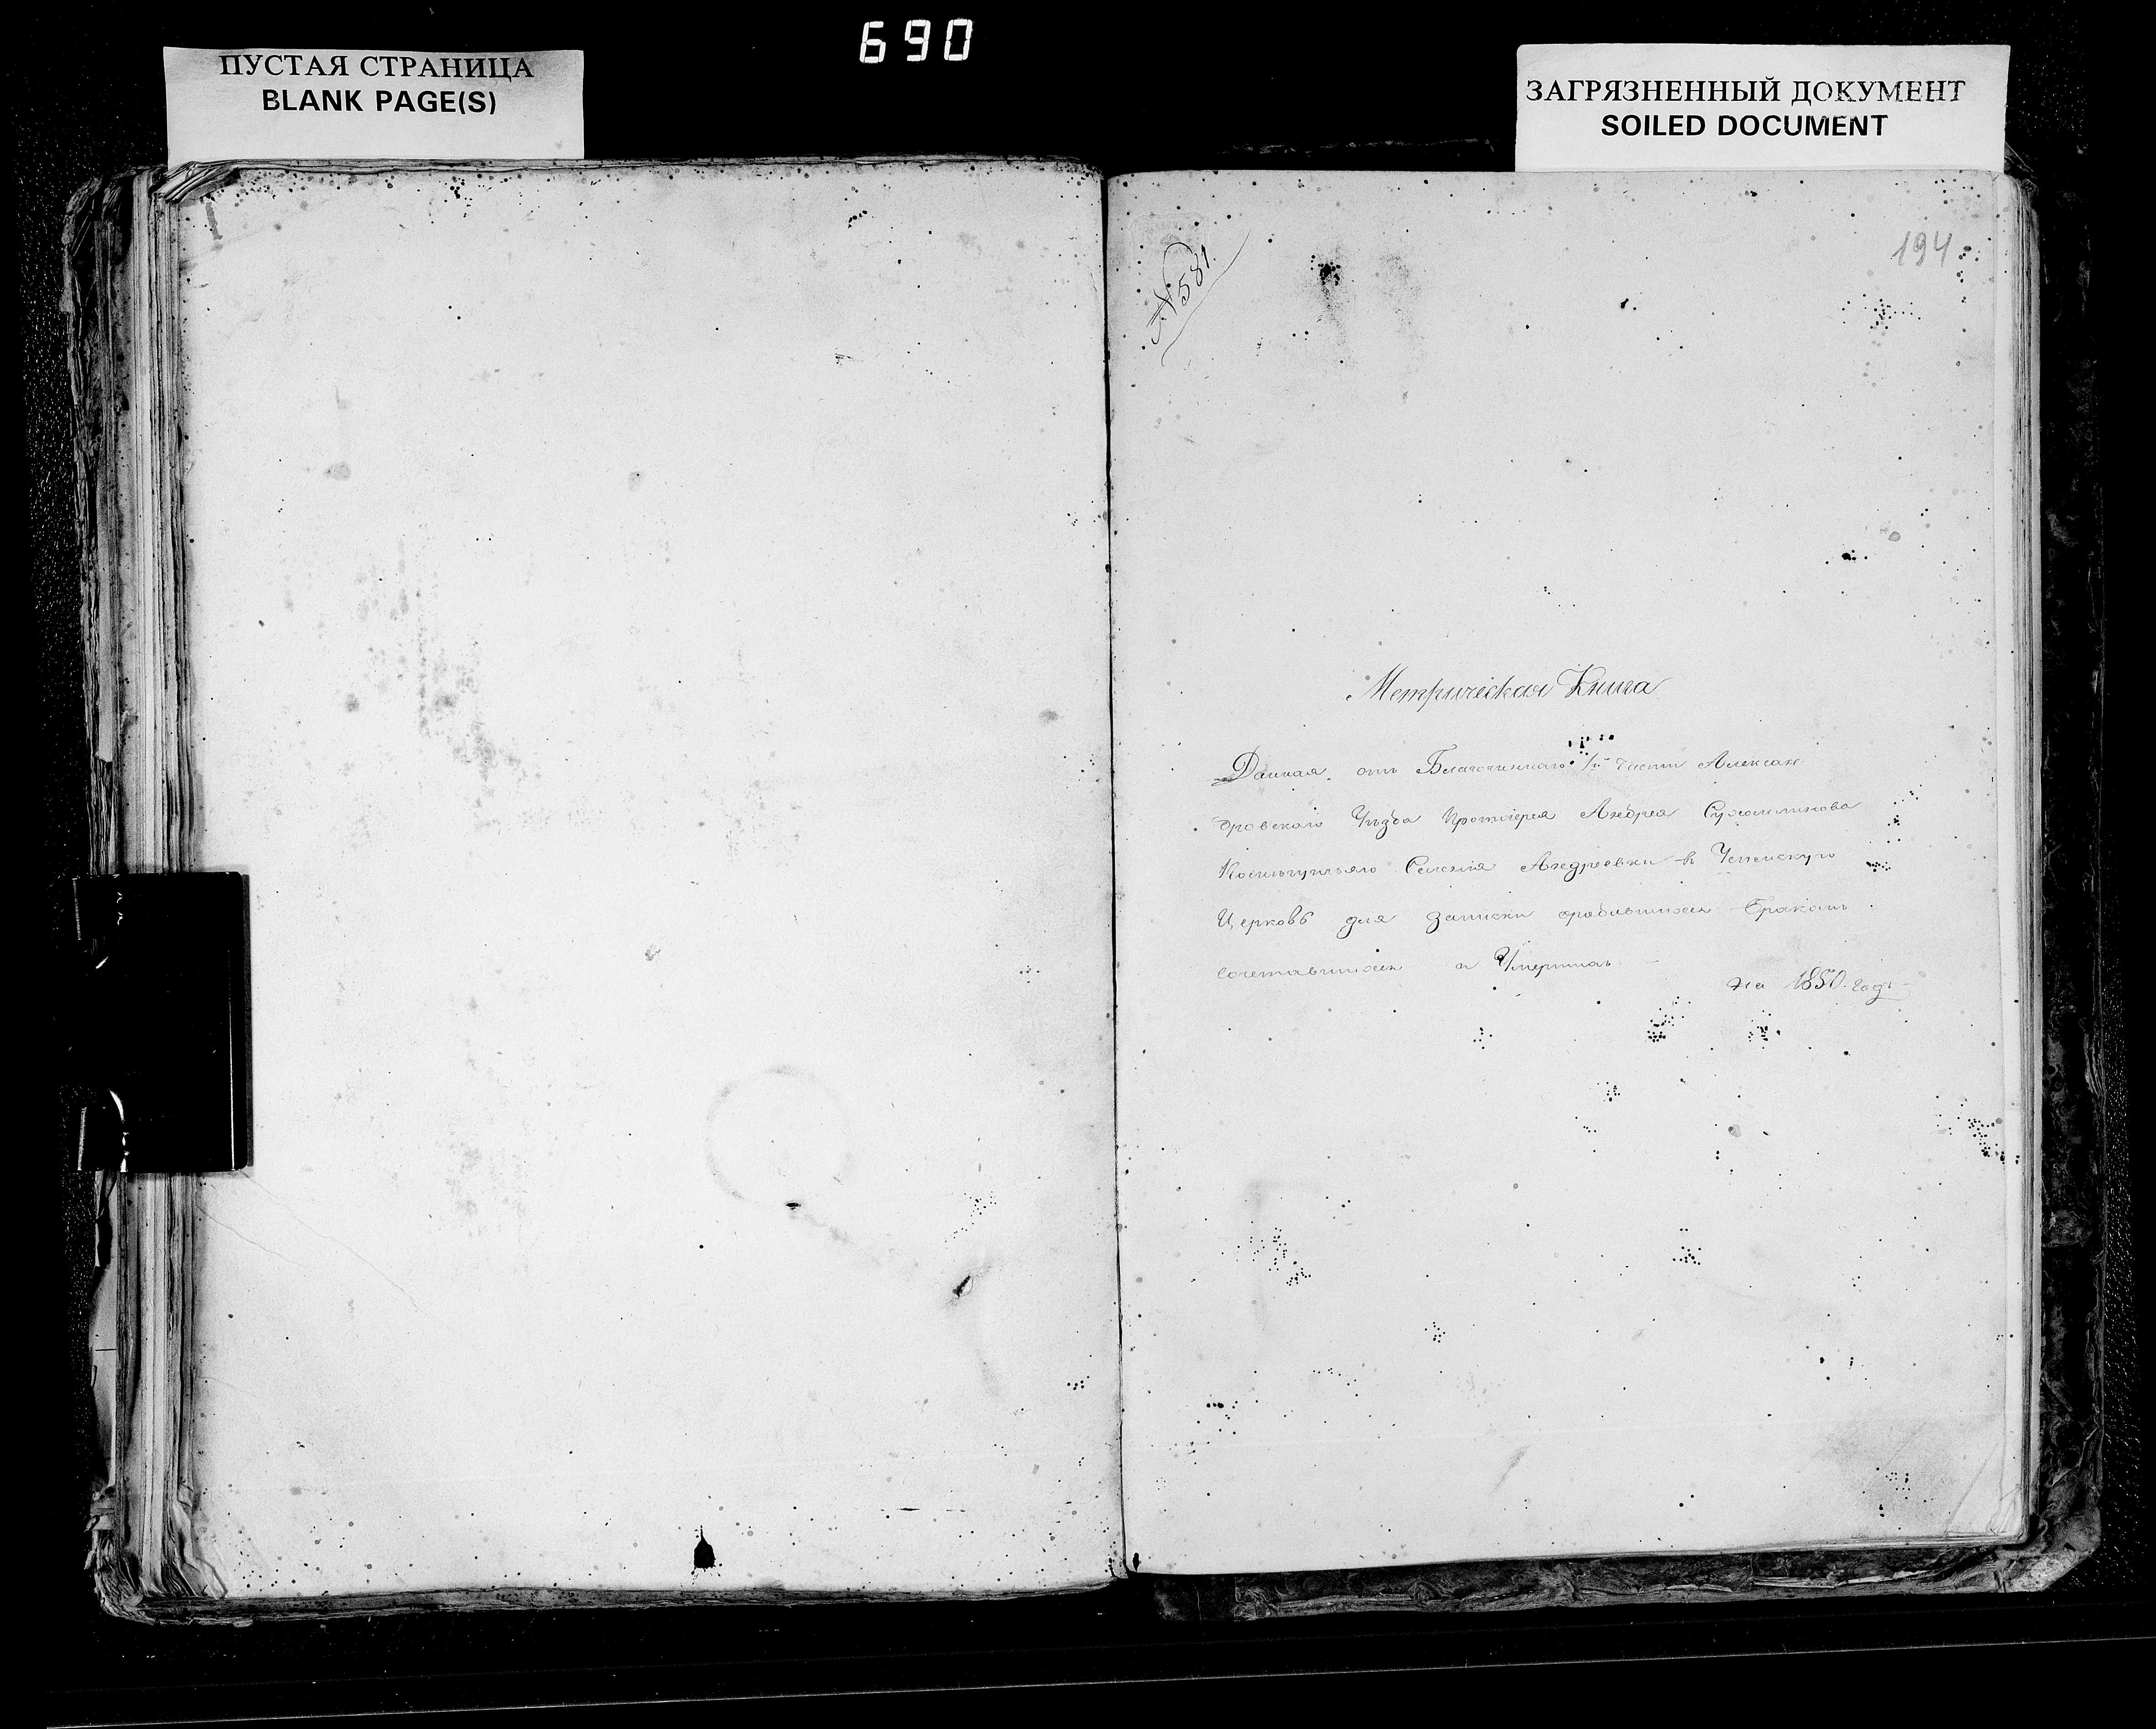 690
ПУСТАЯ СТРАНИЦА
BLANK PAGE(S)
ЗАГРЯЗНЕННЫЙ ДОКУМЕНТ
SOILED DOCUMENT
194
№ 581.
Метрическая Книга
Данная отъ Благочиннаго 1й части Алексан-
дровскаго Уѣзда Протоіерея Андрея Сухомлинова
Селенія Андреевки въ Успенскую
Церковь для записки родившихся Бракомъ
сочетавшихся и Умершихъ
на 1850. годъ